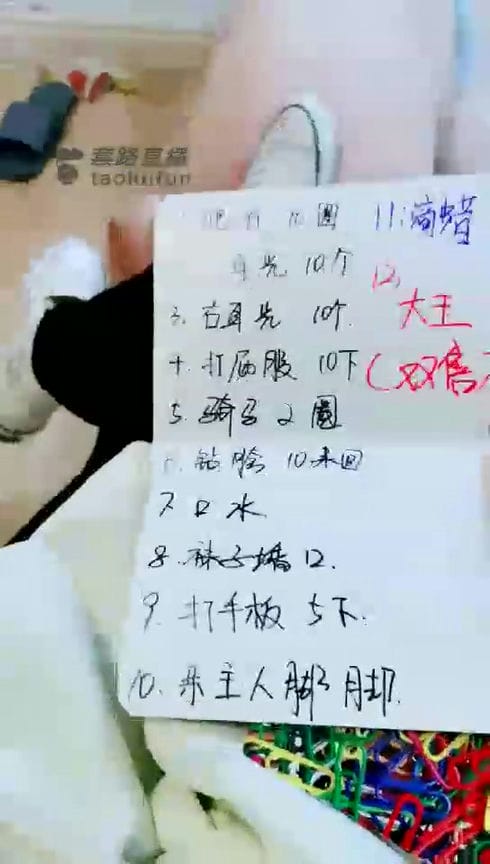 套路直播
taolu.fun
圈 11:滴蜡
耳光 10个 12,
3. 右耳光 10个. 大王
4. 打屁股 10下 (双倍
5. 骑马 2圈
钻胯 10来回
7 口水
8. 袜子 12.
9. 打手板 5下.
10. 主人脚